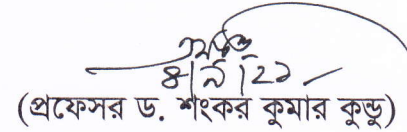 ৪|৯|২১
(প্রফেসর ড. শংকর কুমার কুন্ডু)